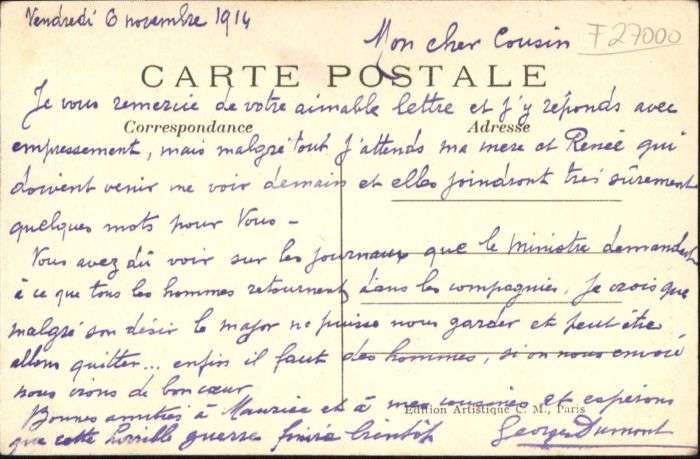 Vendredi 6 novembre 1914
Mon cher Cousin
F 27000
CARTE POSTALE
Je vous remercie de votre aimable lettre et j'y réponds avec
Correspondance
Adresse
empressement, mais malgré tout j'attends ma mere et Renée qui
doivent venir me voir demain et elles joindront très sûrement
quelques mots pour Vous -
Vous avez dû voir sur les journaux que le Ministre demandent
à ce que tous les hommes retournent dans les compagnies. Je crois que
malgré son désir le major ne puisse nous garder et peut être
allons quitter... enfin il faut des hommes, si on nous envoie
nous irons de bon cœur
Bonnes amitiés à Maurice et à mes cousines et espérons
Edition Artistique C. M., Paris
que cette horrible guerre finira bientôt
Georges Dumont